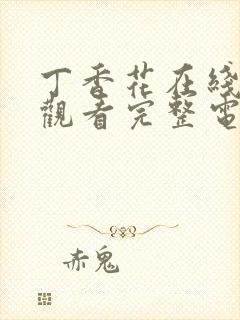 丁香花在綫
觀看完整電
赤鬼